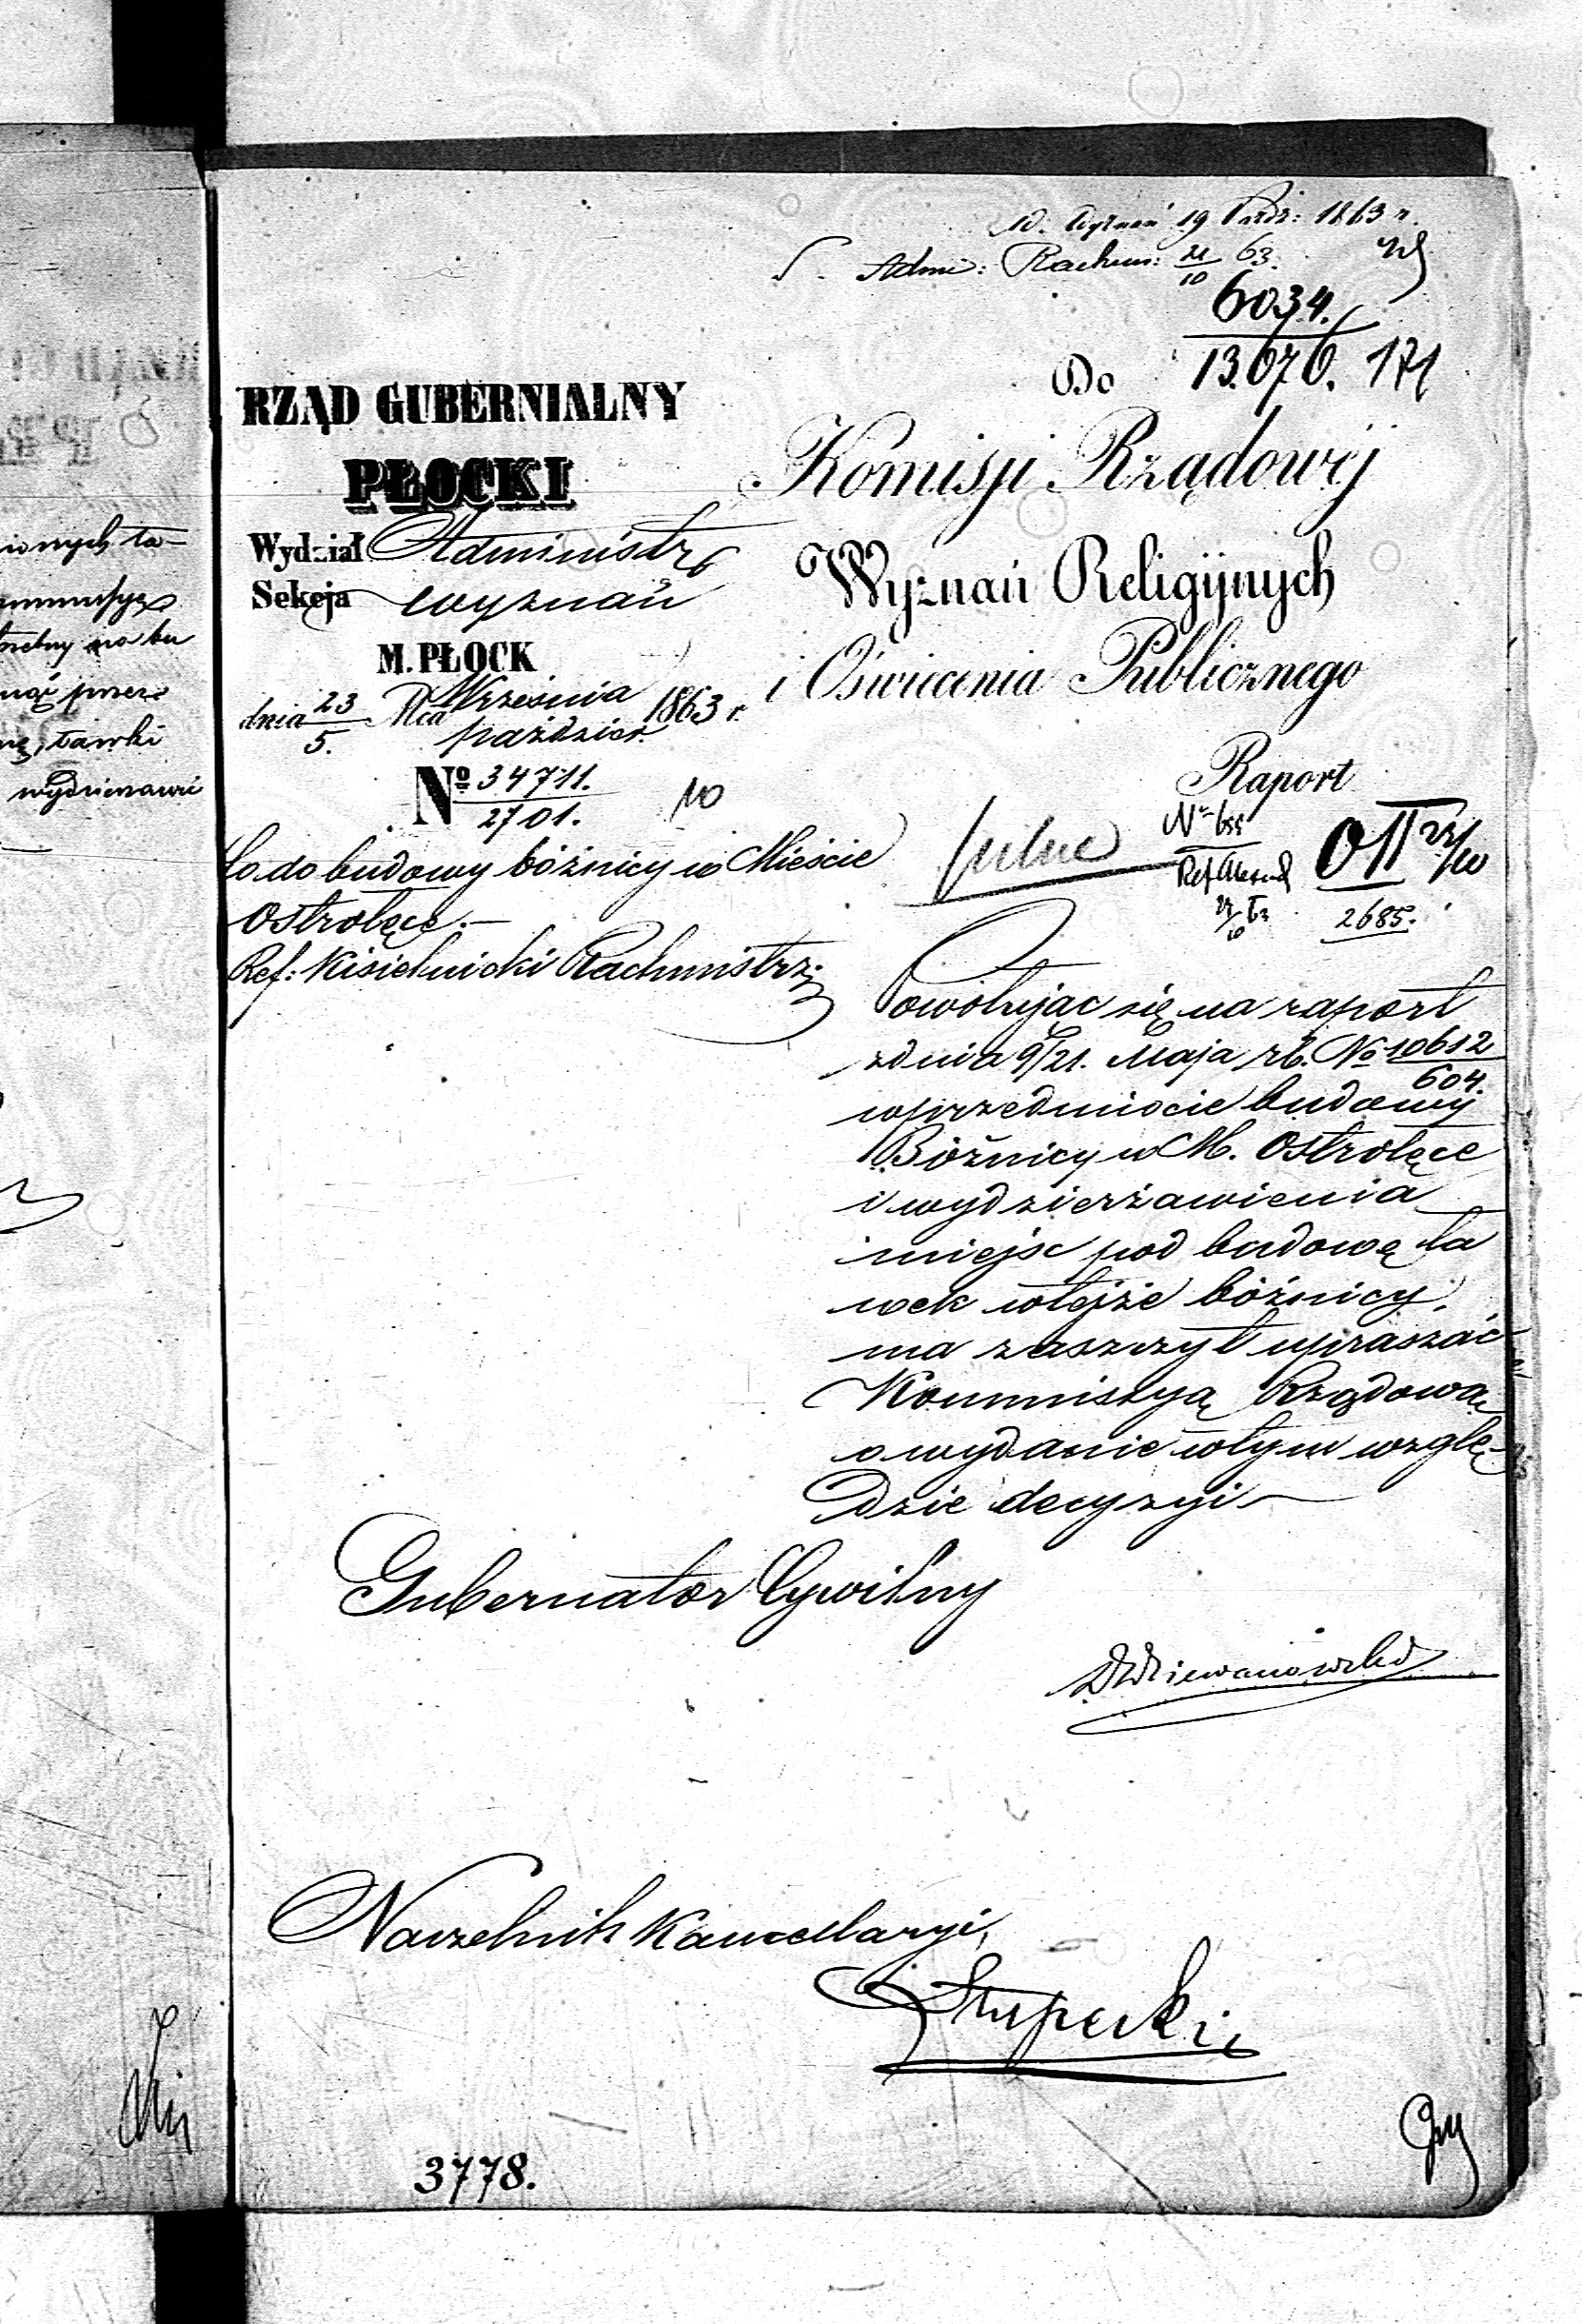 W. Wyznań 19 Paźdz: 1863 r.
Adm: Rachun: 21/10 63.
6034.
13.676. 171
Do
RZĄD GUBERNIALNY
PŁOCKI
Wydział Administr
Sekcja wyznań
M. PŁOCK
dnia 23/5. Mca Września/paździer. 1863 r.
No 34711./2701.
Co do budowy bóżnicy w Mieście
Ostrołęce.—
Ref: Kisielnicki Rachmistrz
Komisji Rządowéj
Wyznań Religijnych
i Oświecenia Publicznego
Raport
pilne
No 655
2685.
Powołując się na raport
z dnia 9/21. Maja rb. No 10612/604.
w przedmiocie budowy
Bóżnicy w M. Ostrołęce
i wydzierżawienia
miejsc pod budowę ła
wek w tejże bóżnicy,
ma zaszczyt upraszać
Kommissyą Rządową
o wydanie w tym wzglę-
dzie decyzyi —
Gubernator Cywilny
Dziewanowski
Naczelnik Kancellaryi,
Słupecki
3778.
ionych ła-
na bu
przez
ławki
wydzierzawić